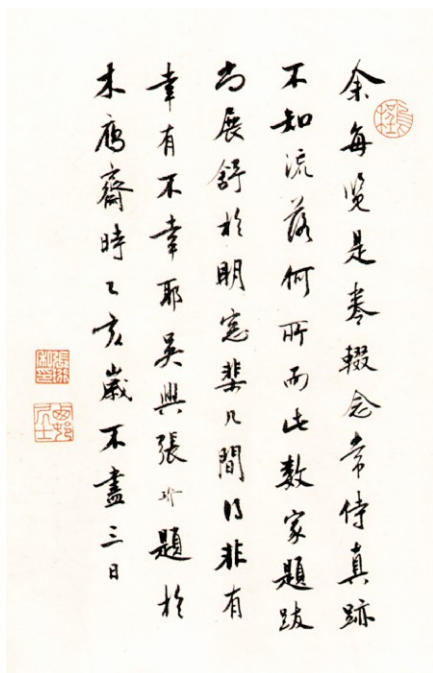 余每览是卷輟念常侍真跡
不知流落何所而此数家題跋
尚展舒於明窓棐几間得非有
幸有不幸耶吳興張珩題於
木雁齋時乙亥嵗不盡三日